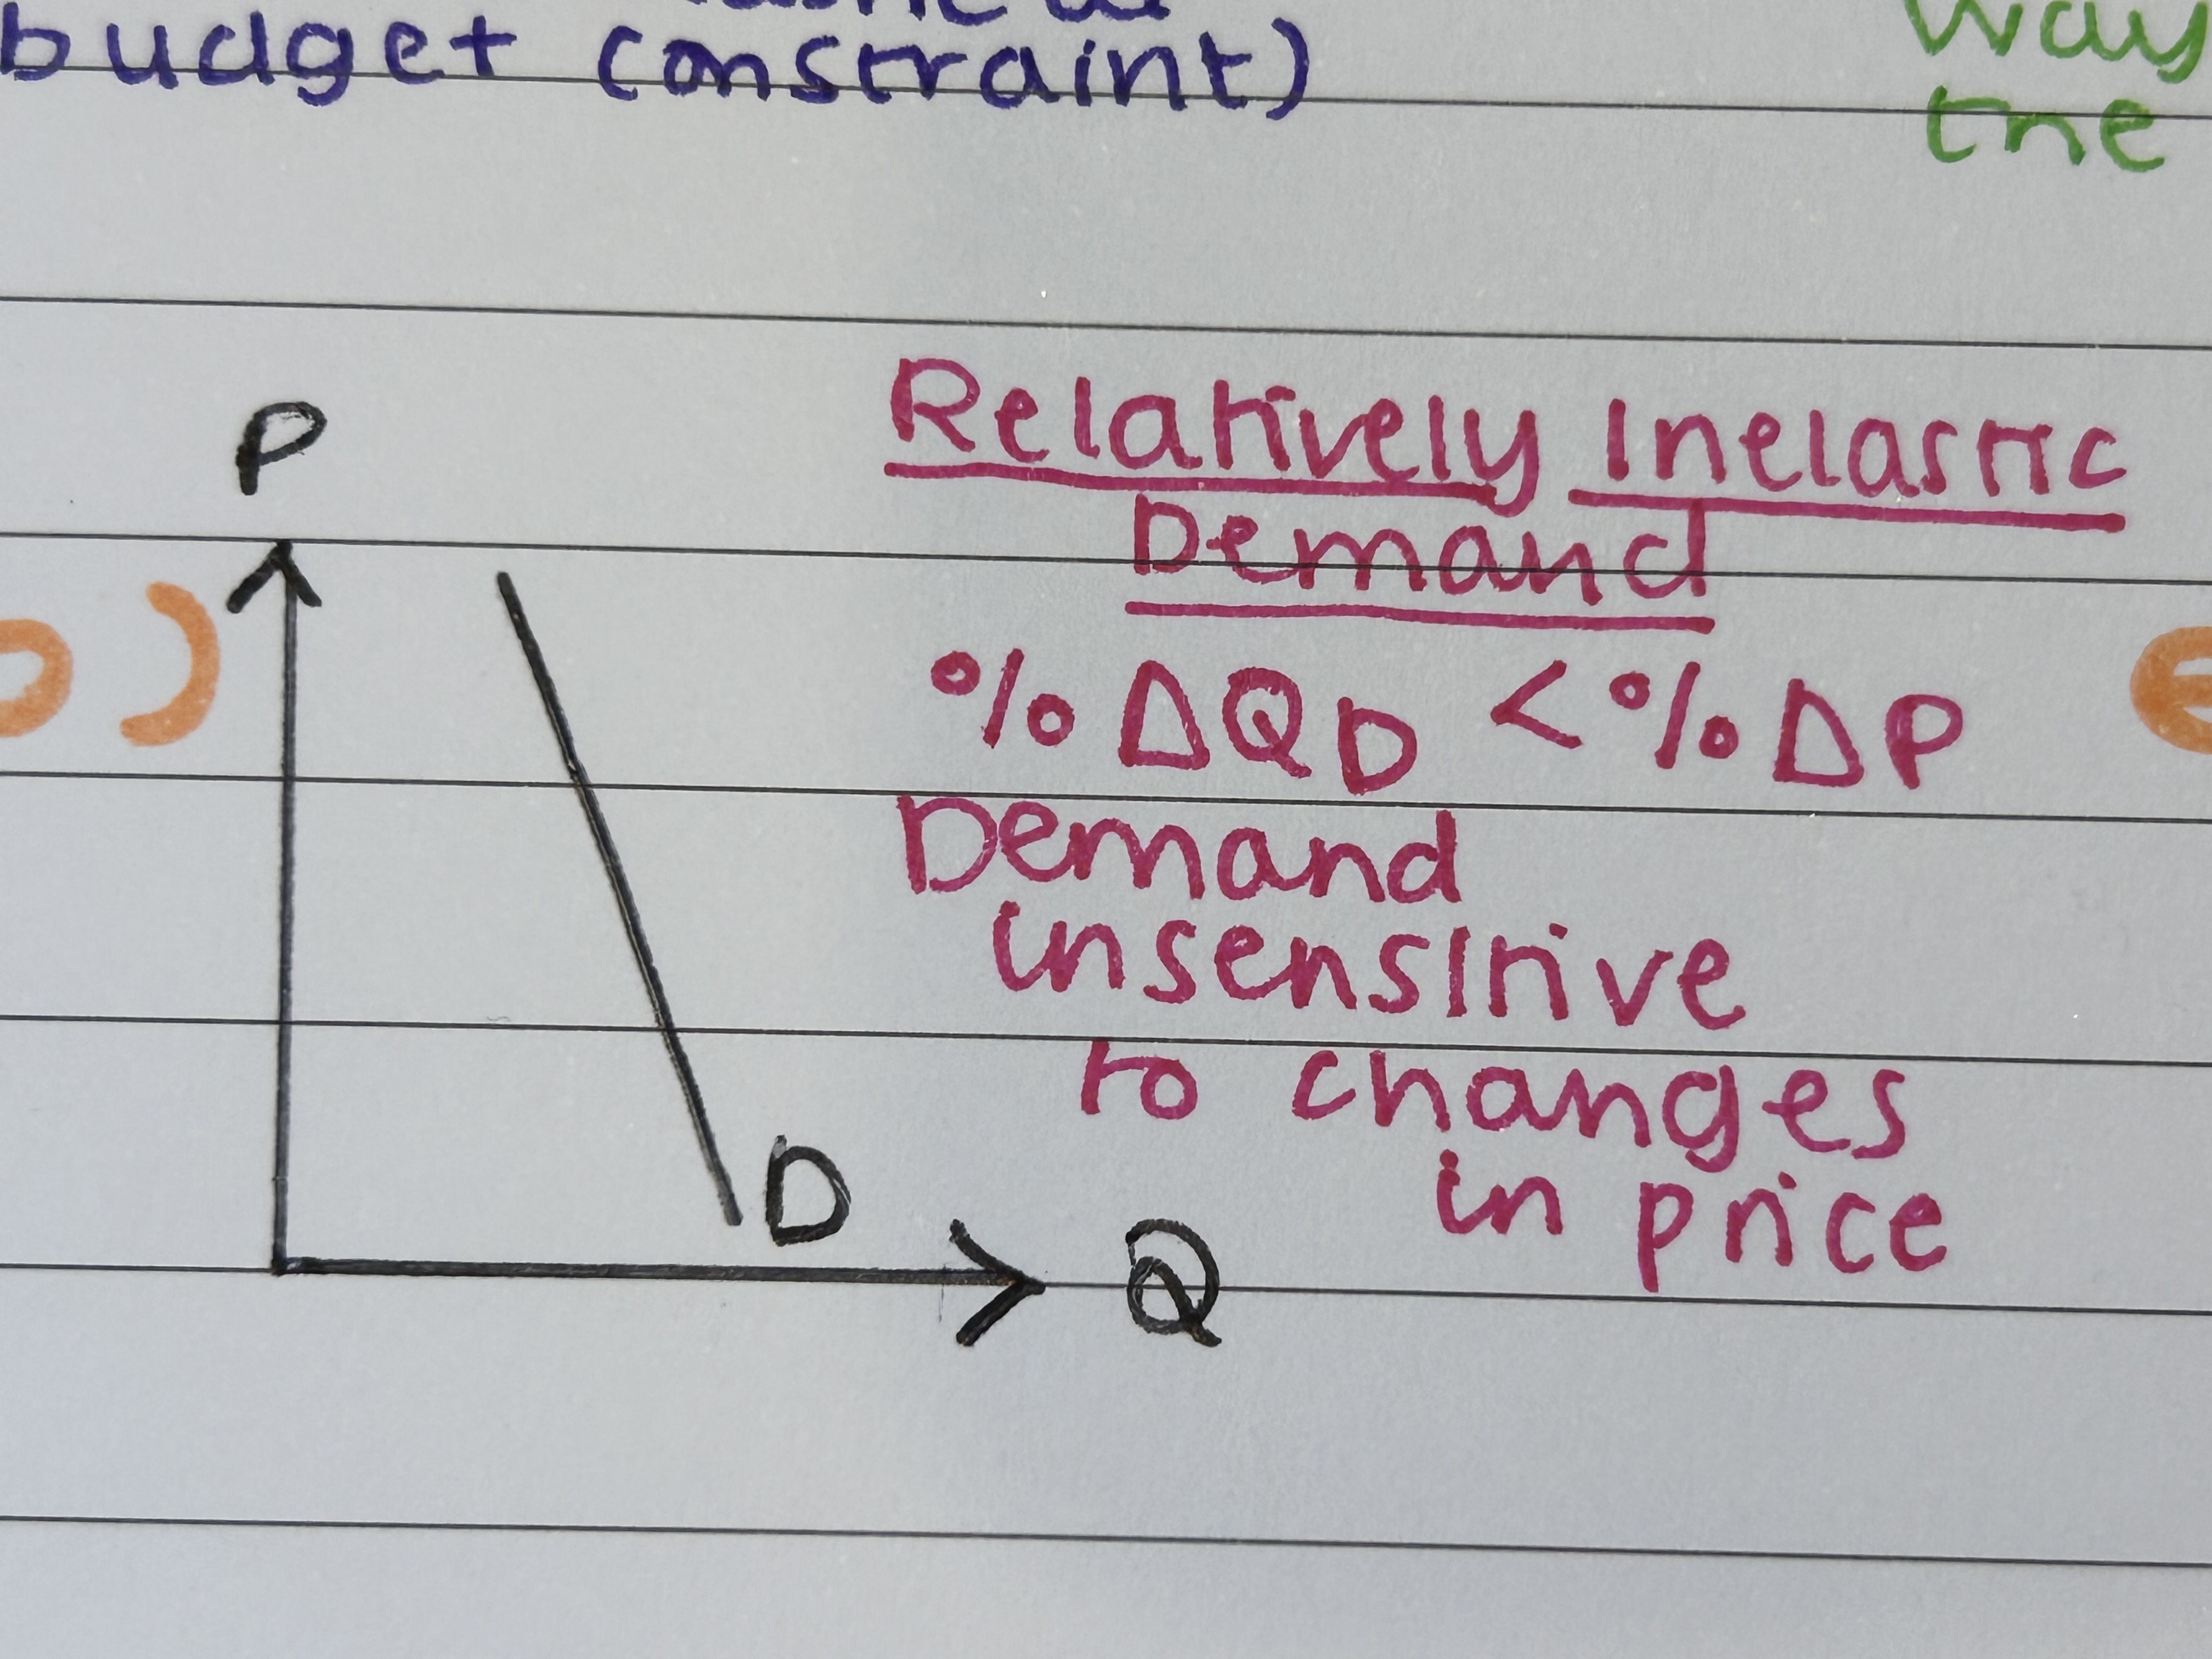 budget constraint)
way
the
P
Relatively Inelastic
Demand
b)
% ΔQD < % ΔP
Demand
insensitive
to changes
in price
D
Q